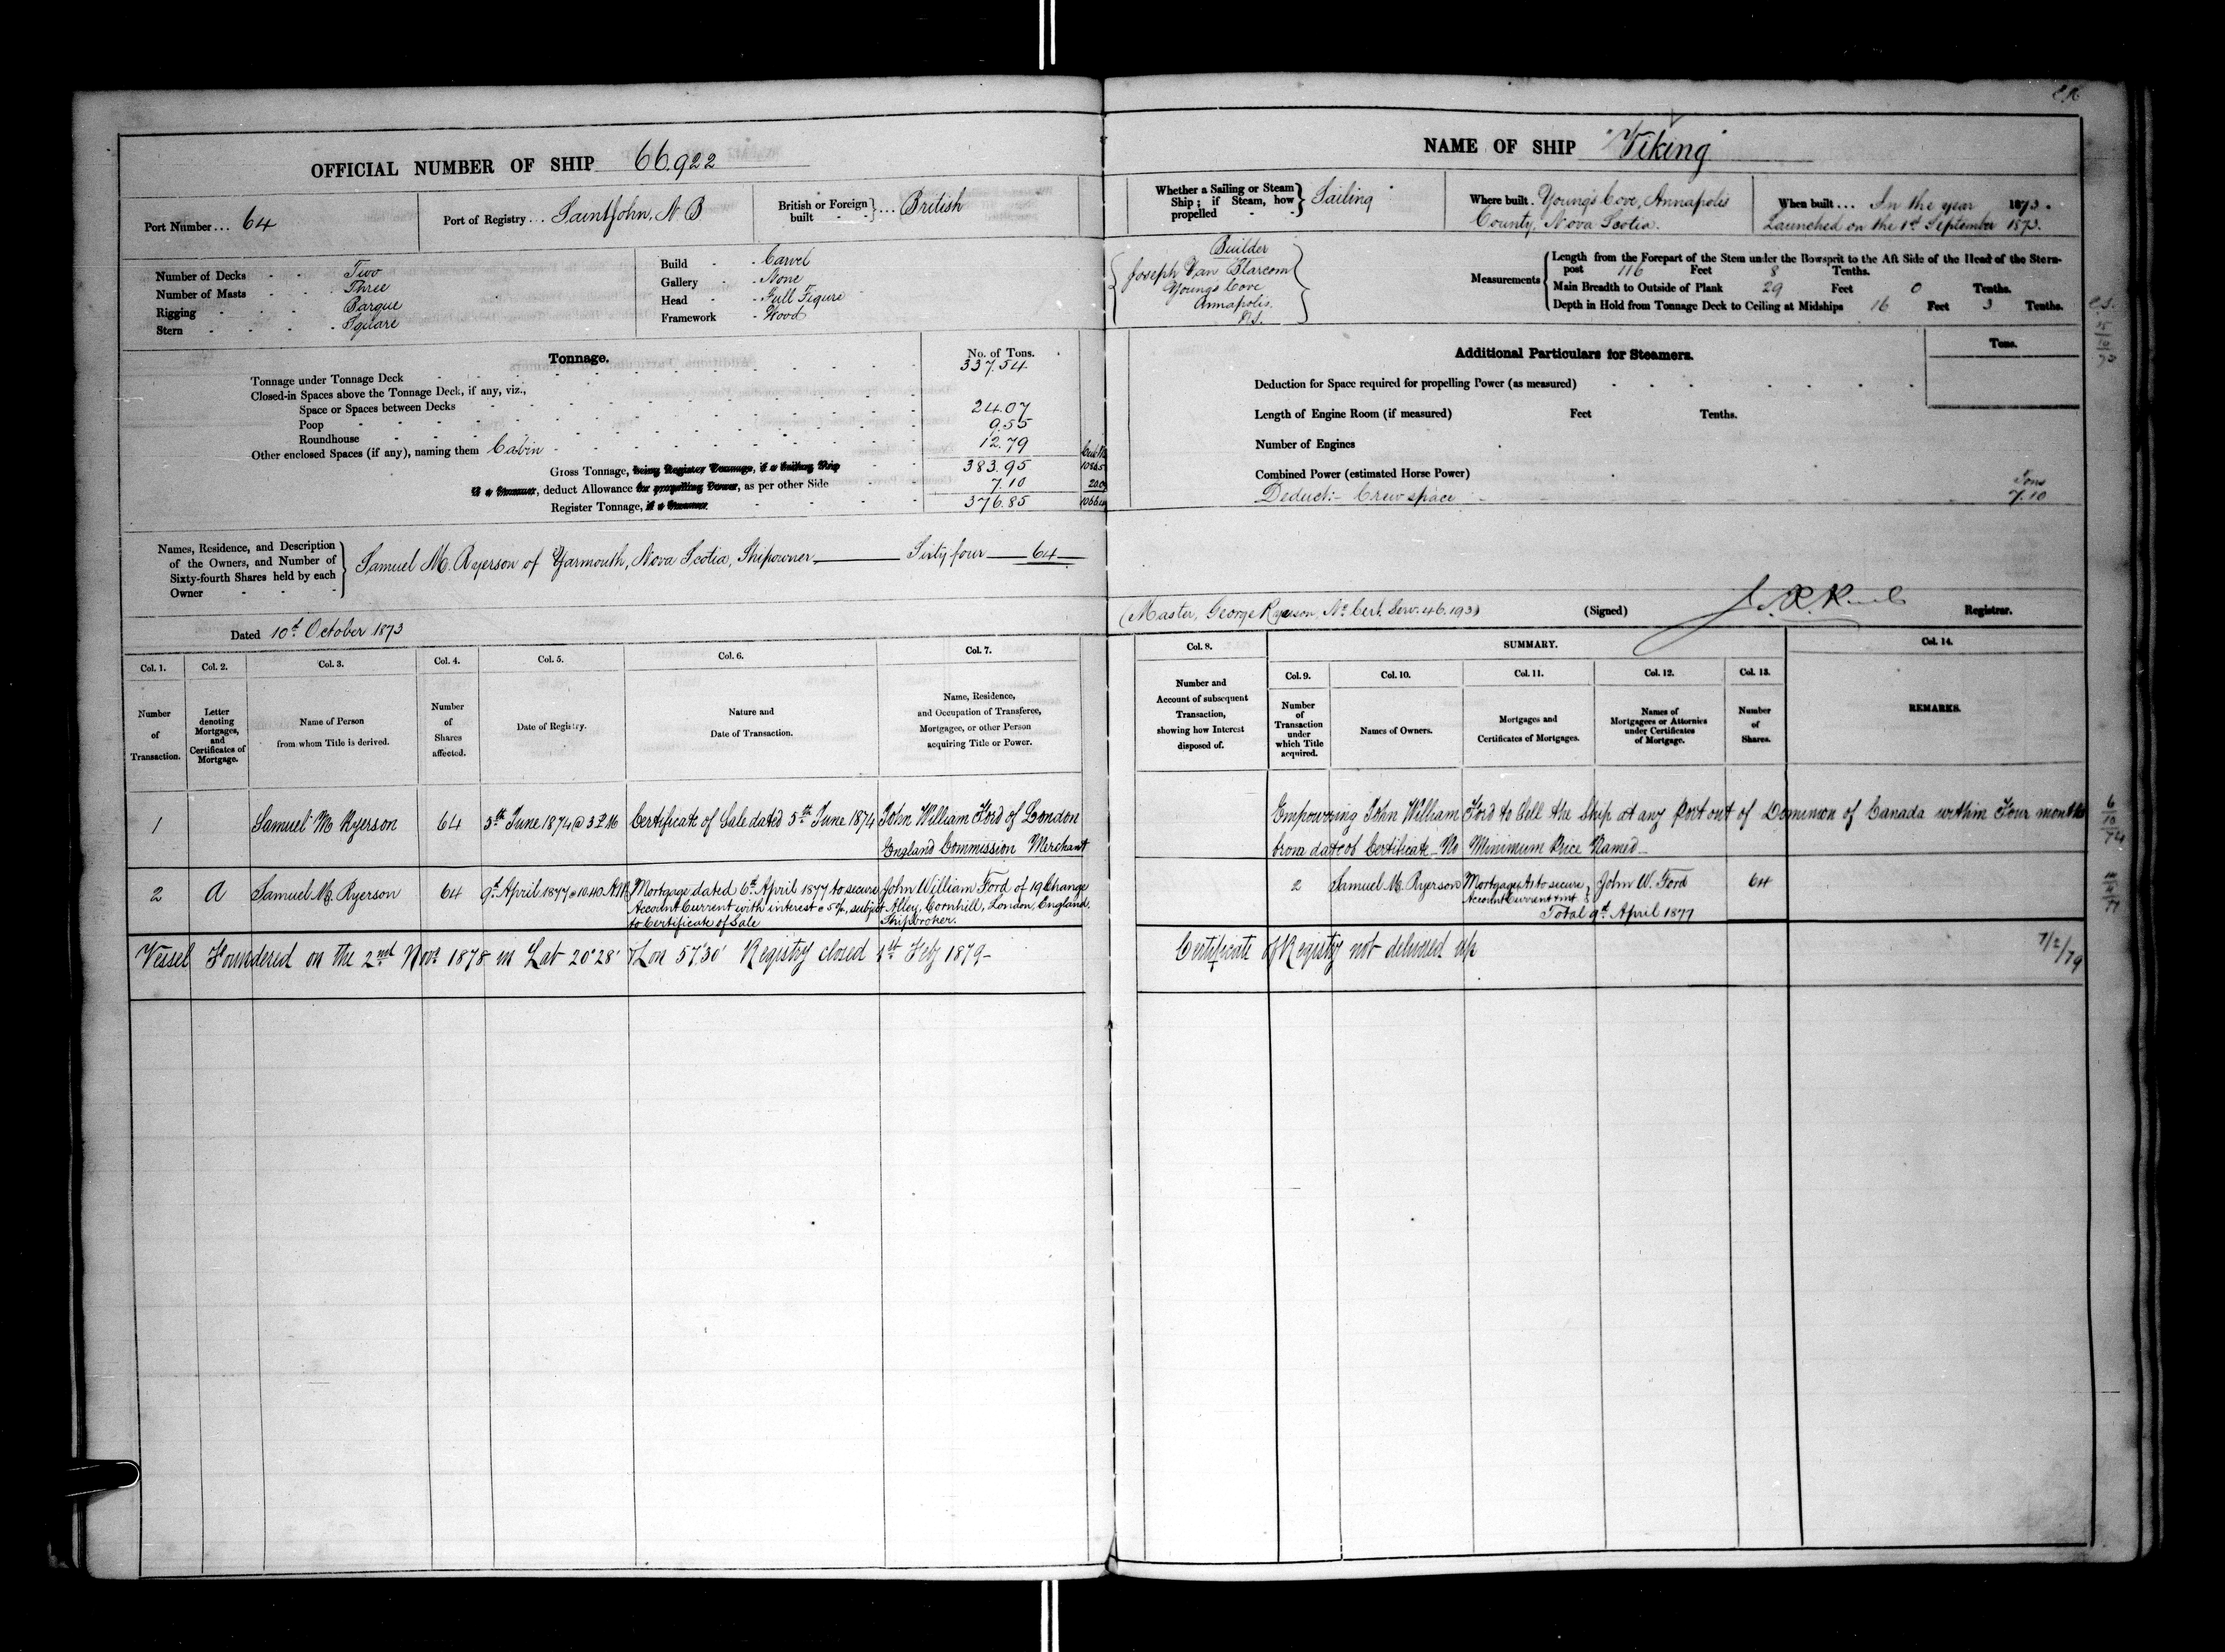 OFFICIAL NUMBER OF SHIP 66.922
Port Number ... 64
Port of Registry ... Saint John, N B
British or Foreign built } ... British
Number of Decks - - Two
Number of Masts - - Three
Rigging - - Barque
Stern - - Square
Build - - Carvel
Gallery - - None
Head - - Full Figure
Framework - Wood
Tonnage.
No. of Tons.
Tonnage under Tonnage Deck 337.54
Closed-in Spaces above the Tonnage Deck, if any, viz.,
Space or Spaces between Decks
Poop 24.07
Roundhouse 9.55
Other enclosed Spaces (if any), naming them Cabin 12.79
Gross Tonnage, being Register Tonnage, if a Sailing Ship 383.95
if a Steamer, deduct Allowance for propelling Power, as per other Side 7.10
Register Tonnage, if a Steamer 376.85
Names, Residence, and Description
of the Owners, and Number of
Sixty-fourth Shares held by each
Owner
Samuel M. Ryerson of Yarmouth, Nova Scotia, Shipowner Sixty four 64
Dated 10th October 1873
Col. 1. Col. 2. Col. 3. Col. 4. Col. 5. Col. 6. Col. 7.
Number of Transaction.
Letter denoting Mortgages, and Certificates of Mortgage.
Name of Person from whom Title is derived.
Number of Shares affected.
Date of Registry.
Nature and Date of Transaction.
Name, Residence, and Occupation of Transferee, Mortgagee, or other Person acquiring Title or Power.
1 Samuel M Ryerson 64 5th June 1874 @ 3 Certificate of Sale dated 5th June 1874 John William Ford of London
England Commission Merchant
2 A Samuel M. Ryerson 64 9th April 1877 @ 10.40 AM Mortgage dated 6th April 1877 to secure John William Ford of 19 Change
Account Current with interest @ 5%, subject Alley, Cornhill, London, England,
to Certificate of Sale Shipbroker.
Vessel Foundered on the 2nd Novr 1878 in Lat 20°28' & Lon 57°30' Registry closed 1st Feby 1879-
NAME OF SHIP "Viking"
Whether a Sailing or Steam Ship; if Steam, how propelled } Sailing
Where built. Young's Cove, Annapolis
County, Nova Scotia.
When built ... In the year 1873.
Launched on the 1st September 1873.
Builder
Joseph Van Blarcom
Youngs Cove
Annapolis.
N.S.
Measurements
Length from the Forepart of the Stem under the Bowsprit to the Aft Side of the Head of the Stern-
post 116 Feet 8 Tenths.
Main Breadth to Outside of Plank 29 Feet 0 Tenths.
Depth in Hold from Tonnage Deck to Ceiling at Midships 16 Feet 3 Tenths.
Additional Particulars for Steamers.
Tons.
Deduction for Space required for propelling Power (as measured)
Length of Engine Room (if measured) Feet Tenths.
Number of Engines
Combined Power (estimated Horse Power)
Tons
Deduct:- Crew space 7.10
(Master, George Ryerson, No Cert. Serv. 46.193)
(Signed) Registrar.
Col. 8. SUMMARY. Col. 14.
Col. 9. Col. 10. Col. 11. Col. 12. Col. 13.
Number and Account of subsequent Transaction, showing how Interest disposed of.
Number of Transaction under which Title acquired.
Names of Owners.
Mortgages and Certificates of Mortgages.
Names of Mortgagees or Attornies under Certificates of Mortgage.
Number of Shares.
REMARKS.
Empowering John William Ford to Sell the Ship at any Port out of Dominion of Canada within Four months
from date of Certificate - No Minimum Price Named -
2 Samuel M. Ryerson Mortgage A to secure John W. Ford 64
Account Current & Int
Total 9th April 1877
Certificate of Registry not delivered up
7/2/79